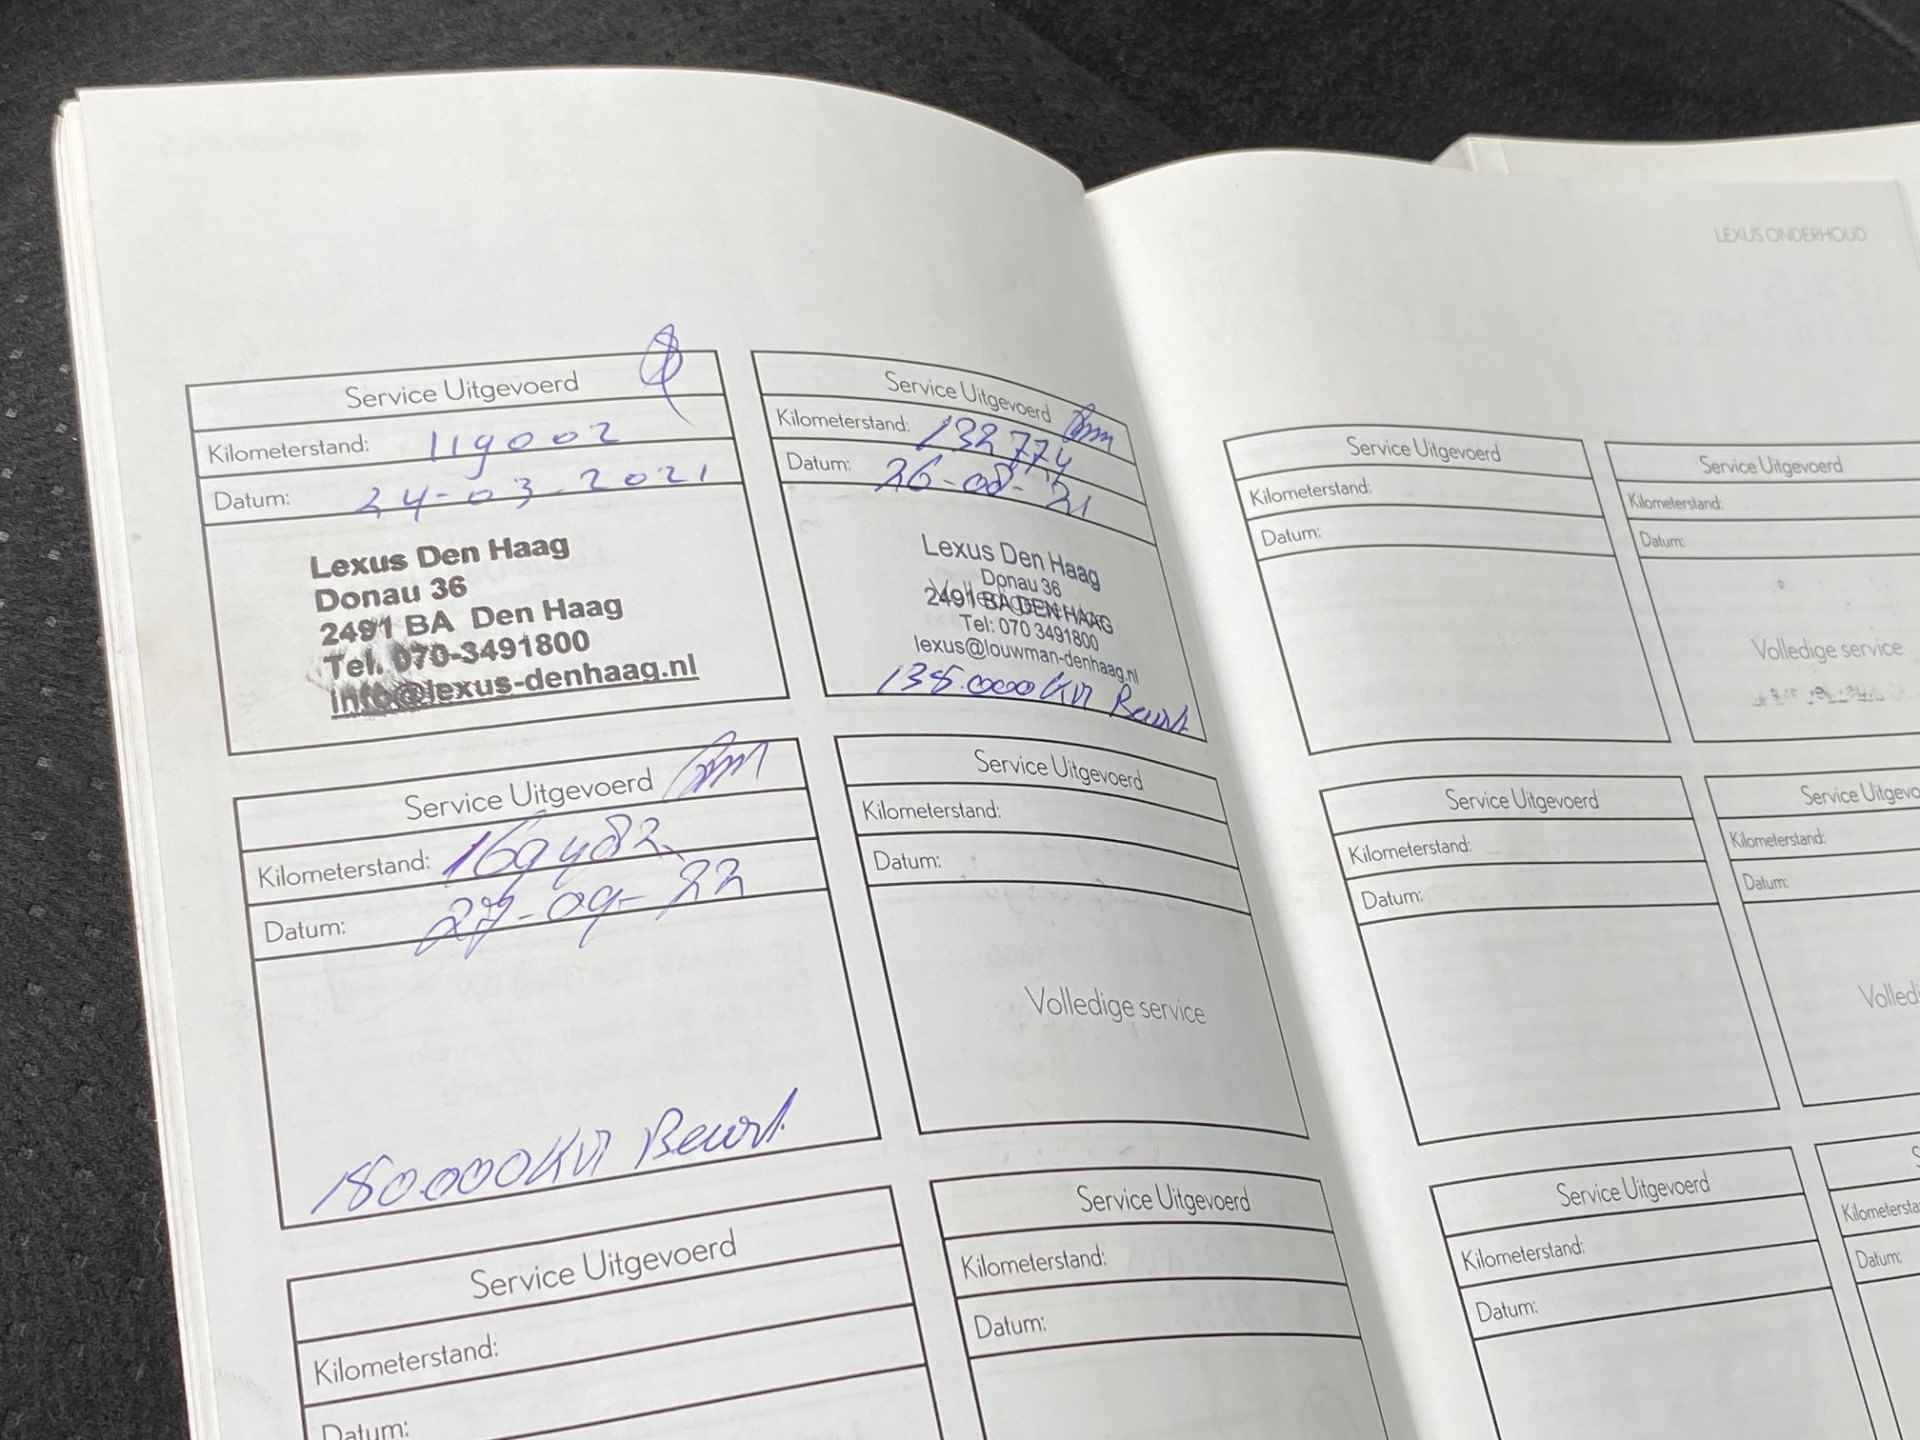 LEXUS ONDERHOUD
Service Uitgevoerd
Kilometerstand: 119002
Datum: 24-03-2021
Lexus Den Haag
Donau 36
2491 BA Den Haag
Tel. 070-3491800
info@lexus-denhaag.nl
Service Uitgevoerd
Kilometerstand: 132774
Datum: 26-08-21
Lexus Den Haag
Donau 36
2491 BA DEN HAAG
Tel: 070 3491800
lexus@louwman-denhaag.nl
135.000 KM Beurt
Service Uitgevoerd
Kilometerstand: 169482
Datum: 27-09-22
180.000 KM Beurt
Service Uitgevoerd
Kilometerstand:
Datum:
Volledige service
Service Uitgevoerd
Kilometerstand:
Datum:
Service Uitgevoerd
Kilometerstand:
Datum:
Service Uitgevoerd
Kilometerstand:
Datum:
Service Uitgevoerd
Kilometerstand:
Datum:
Volledige service
Service Uitgevoerd
Kilometerstand:
Datum:
Service Uitgevo
Kilometerstand:
Datum:
Volledi
Service Uitgevoerd
Kilometerstand:
Datum:
S
Kilometersta
Datum: